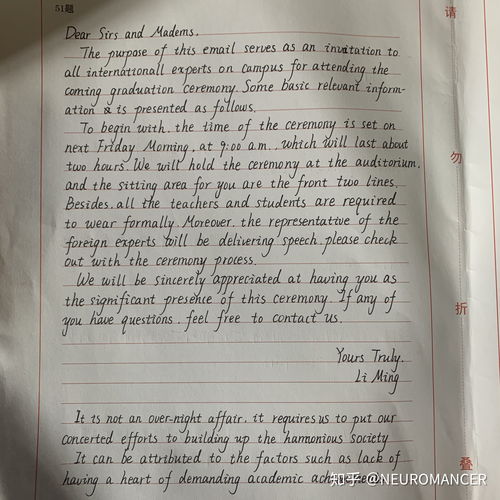 51题
请
Dear Sirs and Madems,
The purpose of this email serves as an invitation to
all internationall experts on campus for attending the
coming graduation ceremony. Some basic relevant inform-
ation & is presented as follows.
To begin with, the time of the ceremony is set on
next Friday Morning, at 9:00 a.m., which will last about
two hours. We will hold the ceremony at the auditorium,
勿
and the sitting area for you are the front two lines.
Besides, all the teachers and students are required
to wear formally. Moreover, the representative of the
foreign experts will be delivering speech, please check
out with the ceremony process.
We will be sincerely appreciated at having you as
the significant presence of this ceremony. If any of
折
you have questions, feel free to contact us.
Yours Truly,
Li Ming
It is not an over-night affair, it requires us to put our
concerted efforts to building up the harmonious society
It can be attributed to the factors such as lack of
叠
having a heart of demanding academic
知乎 @NEUROMANCER